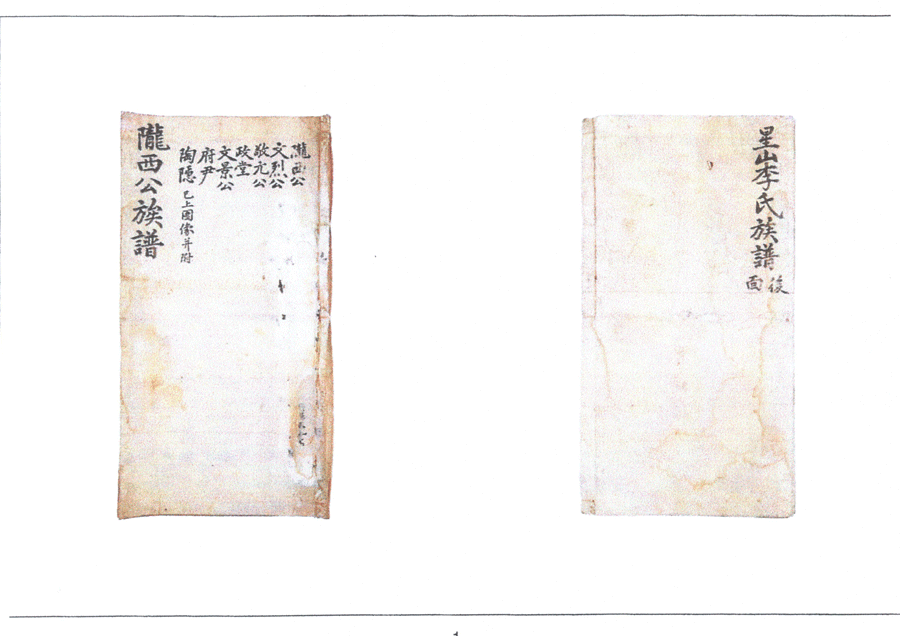 隴西公
文烈公
敬亢公
政堂
文景公
府尹
陶隱 已上圖像并附
隴西公族譜
星山李氏族譜
後面